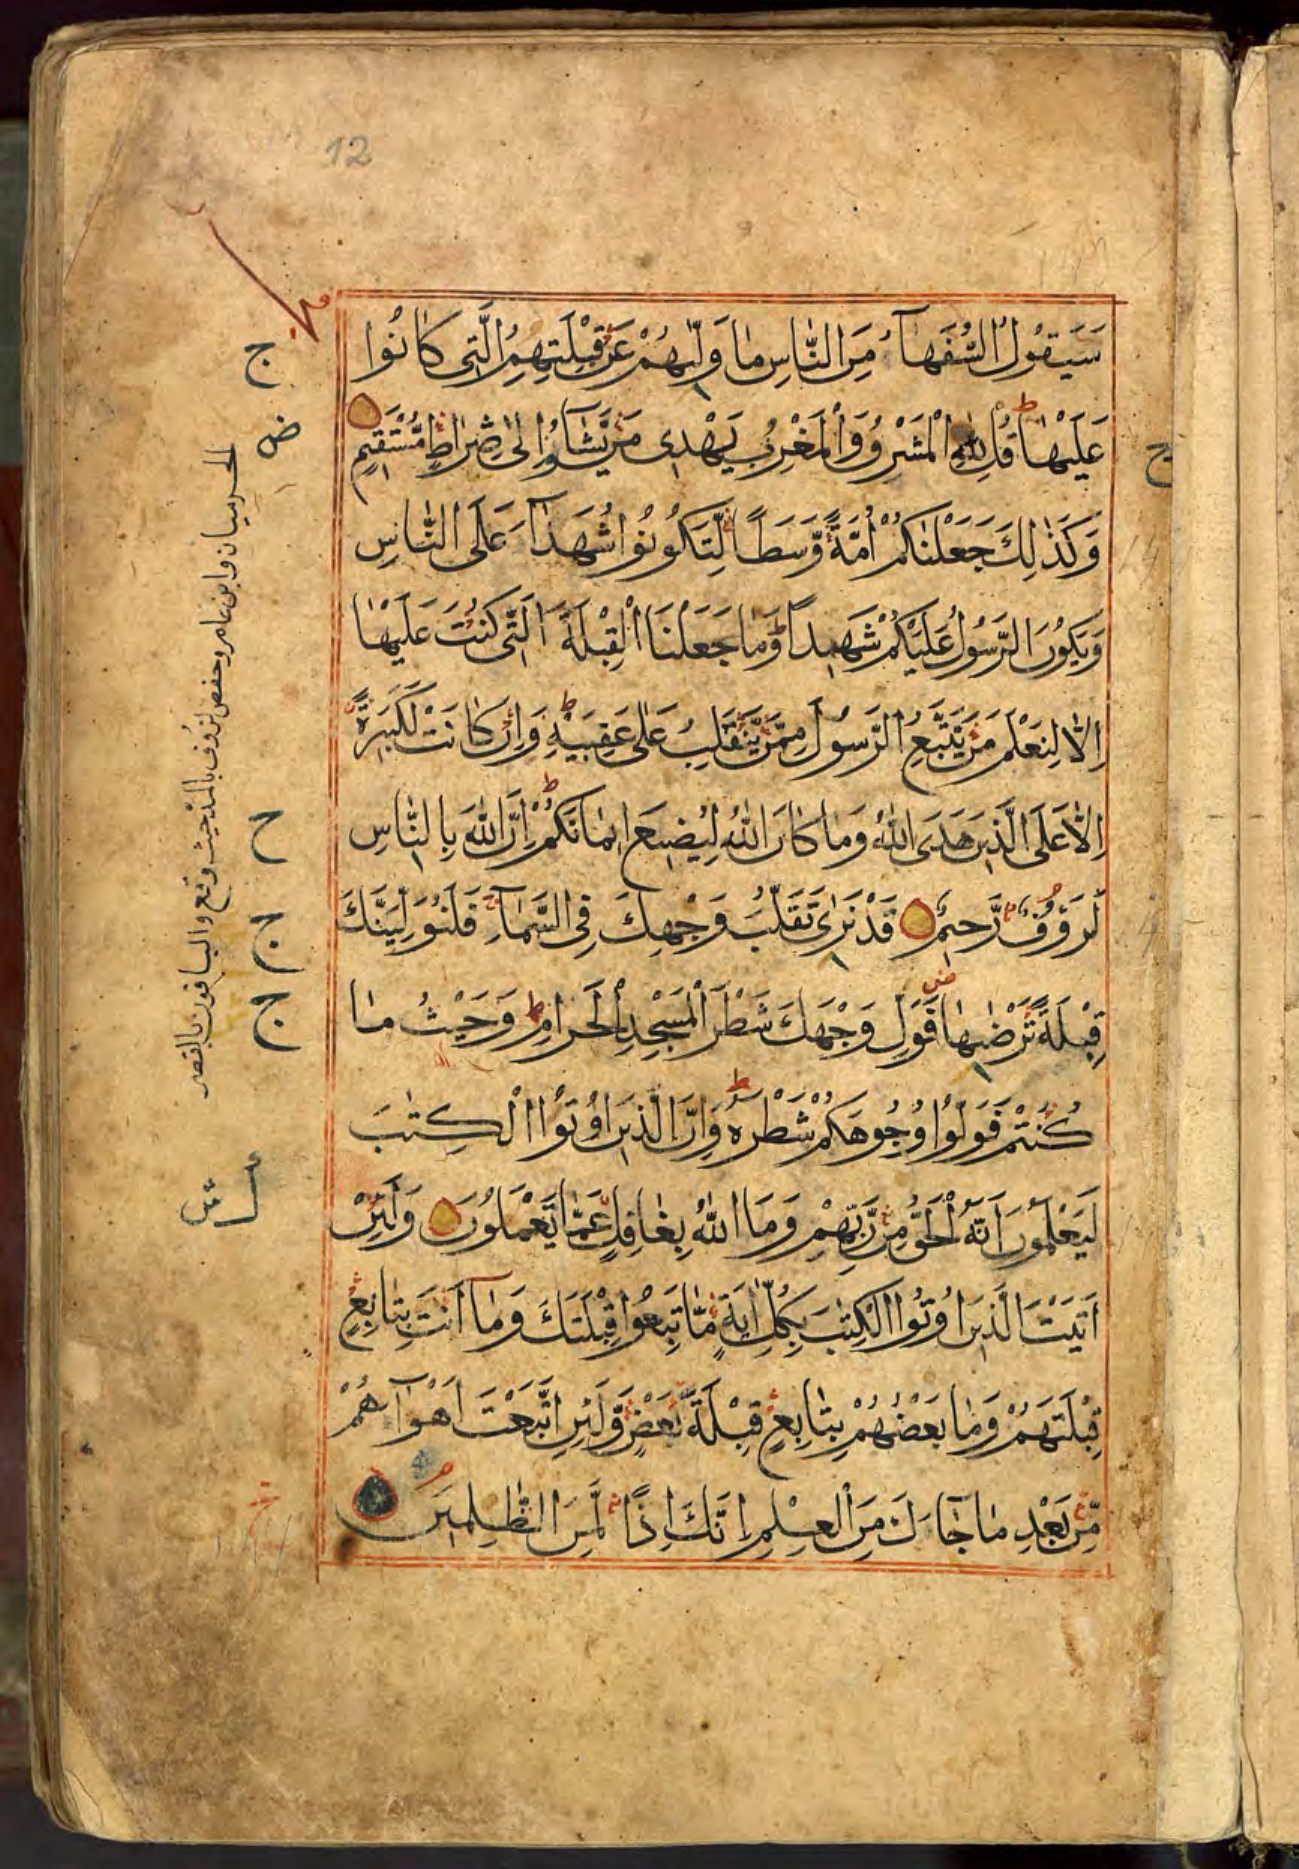 12
سَيَقُولُ السُّفَهَآءُ مِنَ النَّاسِ مَا وَلّٰىهُمْ عَنْ قِبْلَتِهِمُ الَّتِى كَانُوا
عَلَيْهَا قُلْ لِلّٰهِ الْمَشْرِقُ وَالْمَغْرِبُ يَهْدِى مَنْ يَّشَآءُ اِلٰى صِرَاطٍ مُّسْتَقِيمٍ
وَكَذٰلِكَ جَعَلْنٰكُمْ اُمَّةً وَّسَطًا لِّتَكُونُوا شُهَدَآءَ عَلَى النَّاسِ
وَيَكُونَ الرَّسُولُ عَلَيْكُمْ شَهِيدًا وَمَا جَعَلْنَا الْقِبْلَةَ الَّتِى كُنْتَ عَلَيْهَا
اِلَّا لِنَعْلَمَ مَنْ يَّتَّبِعُ الرَّسُولَ مِمَّنْ يَّنْقَلِبُ عَلٰى عَقِبَيْهِ وَاِنْ كَانَتْ لَكَبِيرَةً
اِلَّا عَلَى الَّذِينَ هَدَى اللّٰهُ وَمَا كَانَ اللّٰهُ لِيُضِيعَ اِيمَانَكُمْ اِنَّ اللّٰهَ بِالنَّاسِ
لَرَؤُفٌ رَّحِيمٌ قَدْ نَرٰى تَقَلُّبَ وَجْهِكَ فِى السَّمَآءِ فَلَنُوَلِّيَنَّكَ
قِبْلَةً تَرْضٰىهَا فَوَلِّ وَجْهَكَ شَطْرَ الْمَسْجِدِ الْحَرَامِ وَحَيْثُ مَا
كُنْتُمْ فَوَلُّوا وُجُوهَكُمْ شَطْرَهُ وَاِنَّ الَّذِينَ اُوتُوا الْكِتٰبَ
لَيَعْلَمُونَ اَنَّهُ الْحَقُّ مِنْ رَّبِّهِمْ وَمَا اللّٰهُ بِغَافِلٍ عَمَّا يَعْمَلُونَ وَلَئِنْ
اَتَيْتَ الَّذِينَ اُوتُوا الْكِتٰبَ بِكُلِّ اٰيَةٍ مَّا تَبِعُوا قِبْلَتَكَ وَمَآ اَنْتَ بِتَابِعٍ
قِبْلَتَهُمْ وَمَا بَعْضُهُمْ بِتَابِعٍ قِبْلَةَ بَعْضٍ وَّلَئِنِ اتَّبَعْتَ اَهْوَآءَهُمْ
مِّنْ بَعْدِ مَا جَآءَكَ مِنَ الْعِلْمِ اِنَّكَ اِذًا لَّمِنَ الظّٰلِمِينَ
ج
ض
ج
الحرميان وابن عامر وحفص لرؤف بالمد حيث وقع والباقون بالقصر
ح
ج
ج